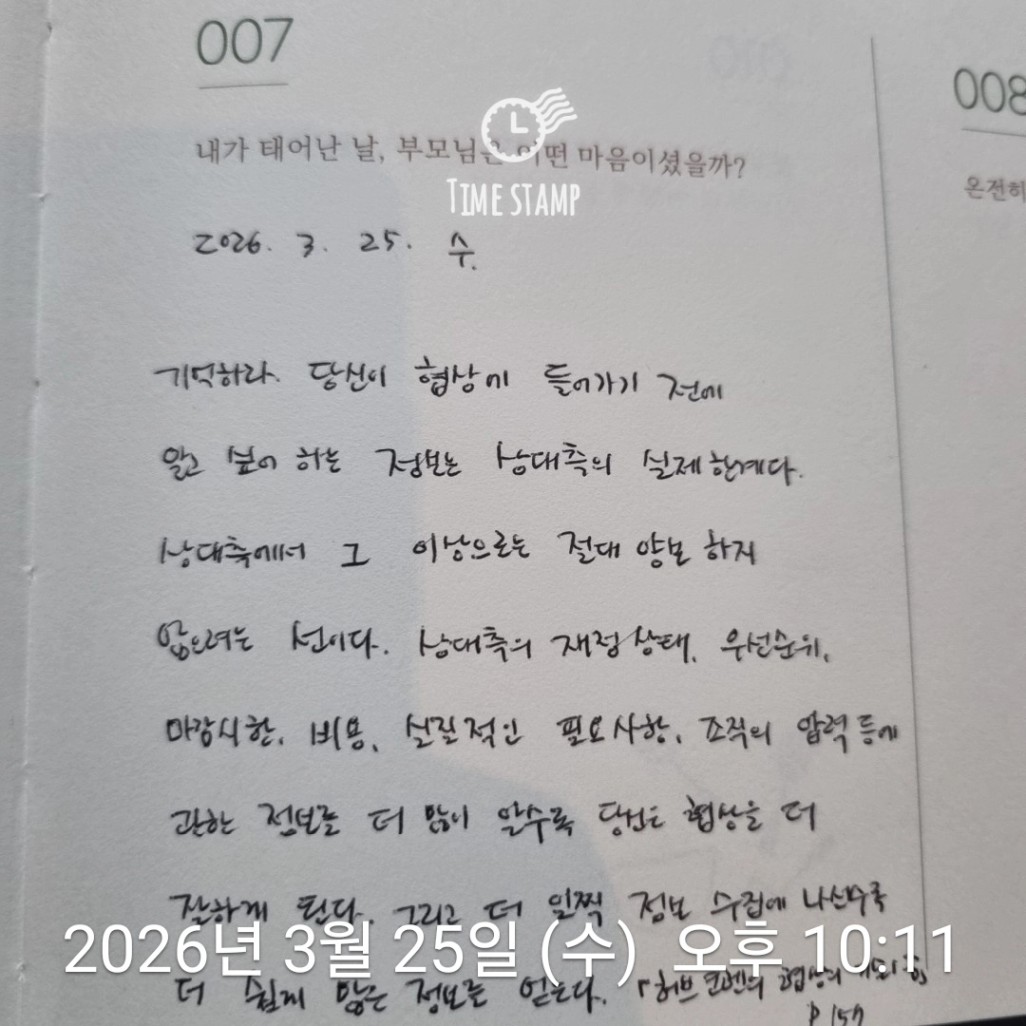 007
008
내가 태어난 날, 부모님은 어떤 마음이셨을까?
온전히
TIME STAMP
2026. 3. 25. 수.
기억하라. 당신이 협상에 들어가기 전에
알고 싶어 하는 정보는 상대측의 실제 한계다.
상대측에서 그 이상으로는 절대 양보 하지
않으려는 선이다. 상대측의 재정상태, 우선순위,
마감시한, 비용, 실질적인 필요사항, 조직의 압력 등에
관한 정보를 더 많이 알수록 당신은 협상을 더
잘하게 된다. 그리고 더 일찍 정보 수집에 나설수록
2026년 3월 25일 (수) 오후 10:11
더 쉽게 많은 정보를 얻는다. 「허브 코헨의 협상의
P 157